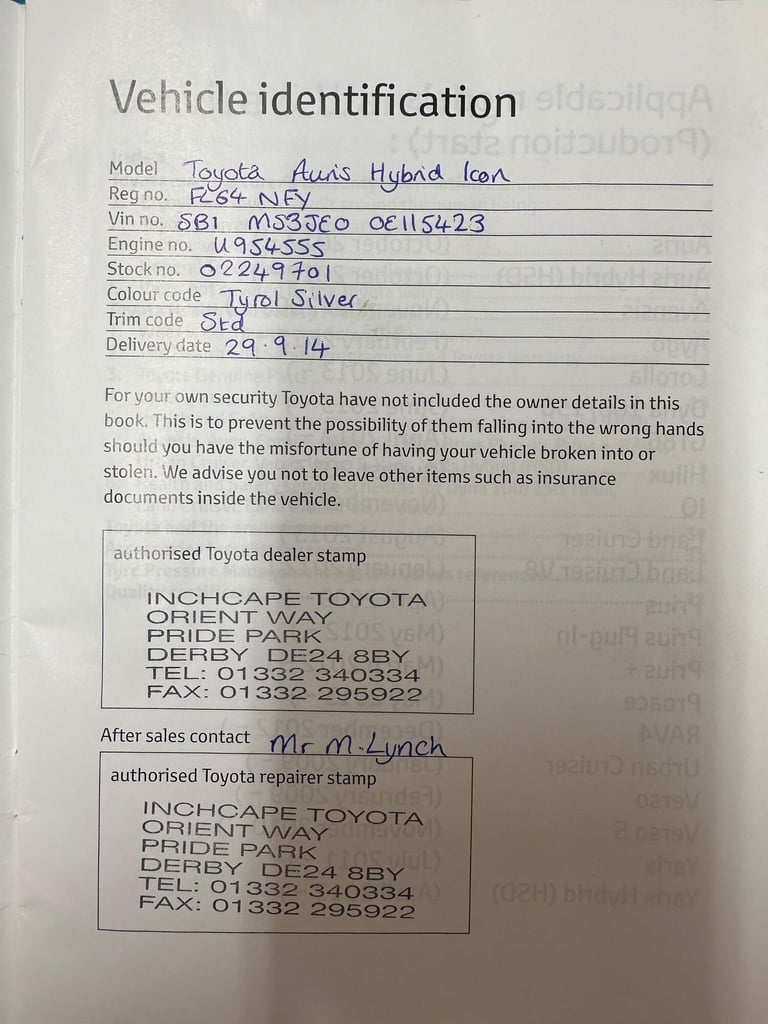 Vehicle identification
Model Toyota Auris Hybrid Icon
Reg no. FL64 NFY
Vin no. SB1 MS3JE0 0E115423
Engine no. U954555
Stock no. 02249701
Colour code Tyrol Silver
Trim code Std
Delivery date 29.9.14
For your own security Toyota have not included the owner details in this
book. This is to prevent the possibility of them falling into the wrong hands
should you have the misfortune of having your vehicle broken into or
stolen. We advise you not to leave other items such as insurance
documents inside the vehicle.
authorised Toyota dealer stamp
INCHCAPE TOYOTA
ORIENT WAY
PRIDE PARK
DERBY DE24 8BY
TEL: 01332 340334
FAX: 01332 295922
After sales contact Mr M. Lynch
authorised Toyota repairer stamp
INCHCAPE TOYOTA
ORIENT WAY
PRIDE PARK
DERBY DE24 8BY
TEL: 01332 340334
FAX: 01332 295922